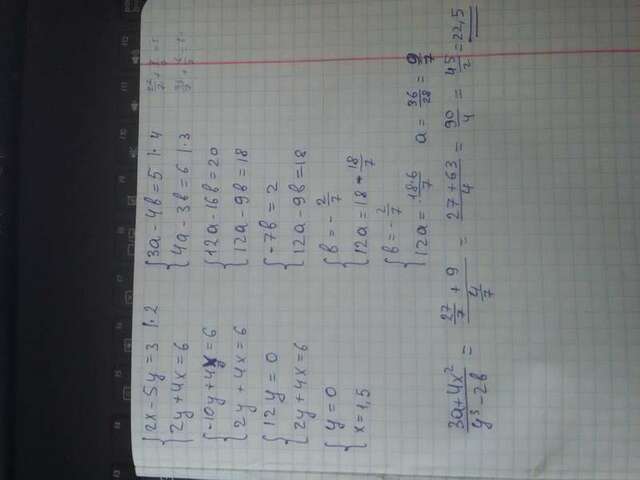 2x - 5y = 3 |·2
2y + 4x = 6
-10y + 4x = 6
2y + 4x = 6
12y = 0
2y + 4x = 6
y = 0
x = 1,5
3a - 4b = 5 |·4
4a - 3b = 6 |·3
12a - 16b = 20
12a - 9b = 18
-7b = 2
12a - 9b = 18
b = -2/7
12a = 18 - 18/7
b = -2/7
12a = 18·6/7 a = 36/28 = 9/7
(3a + 4x²)/(y³ - 2b) = (27/7 + 9)/(4/7) = (27 + 63)/4 = 90/4 = 45/2 = 22,5